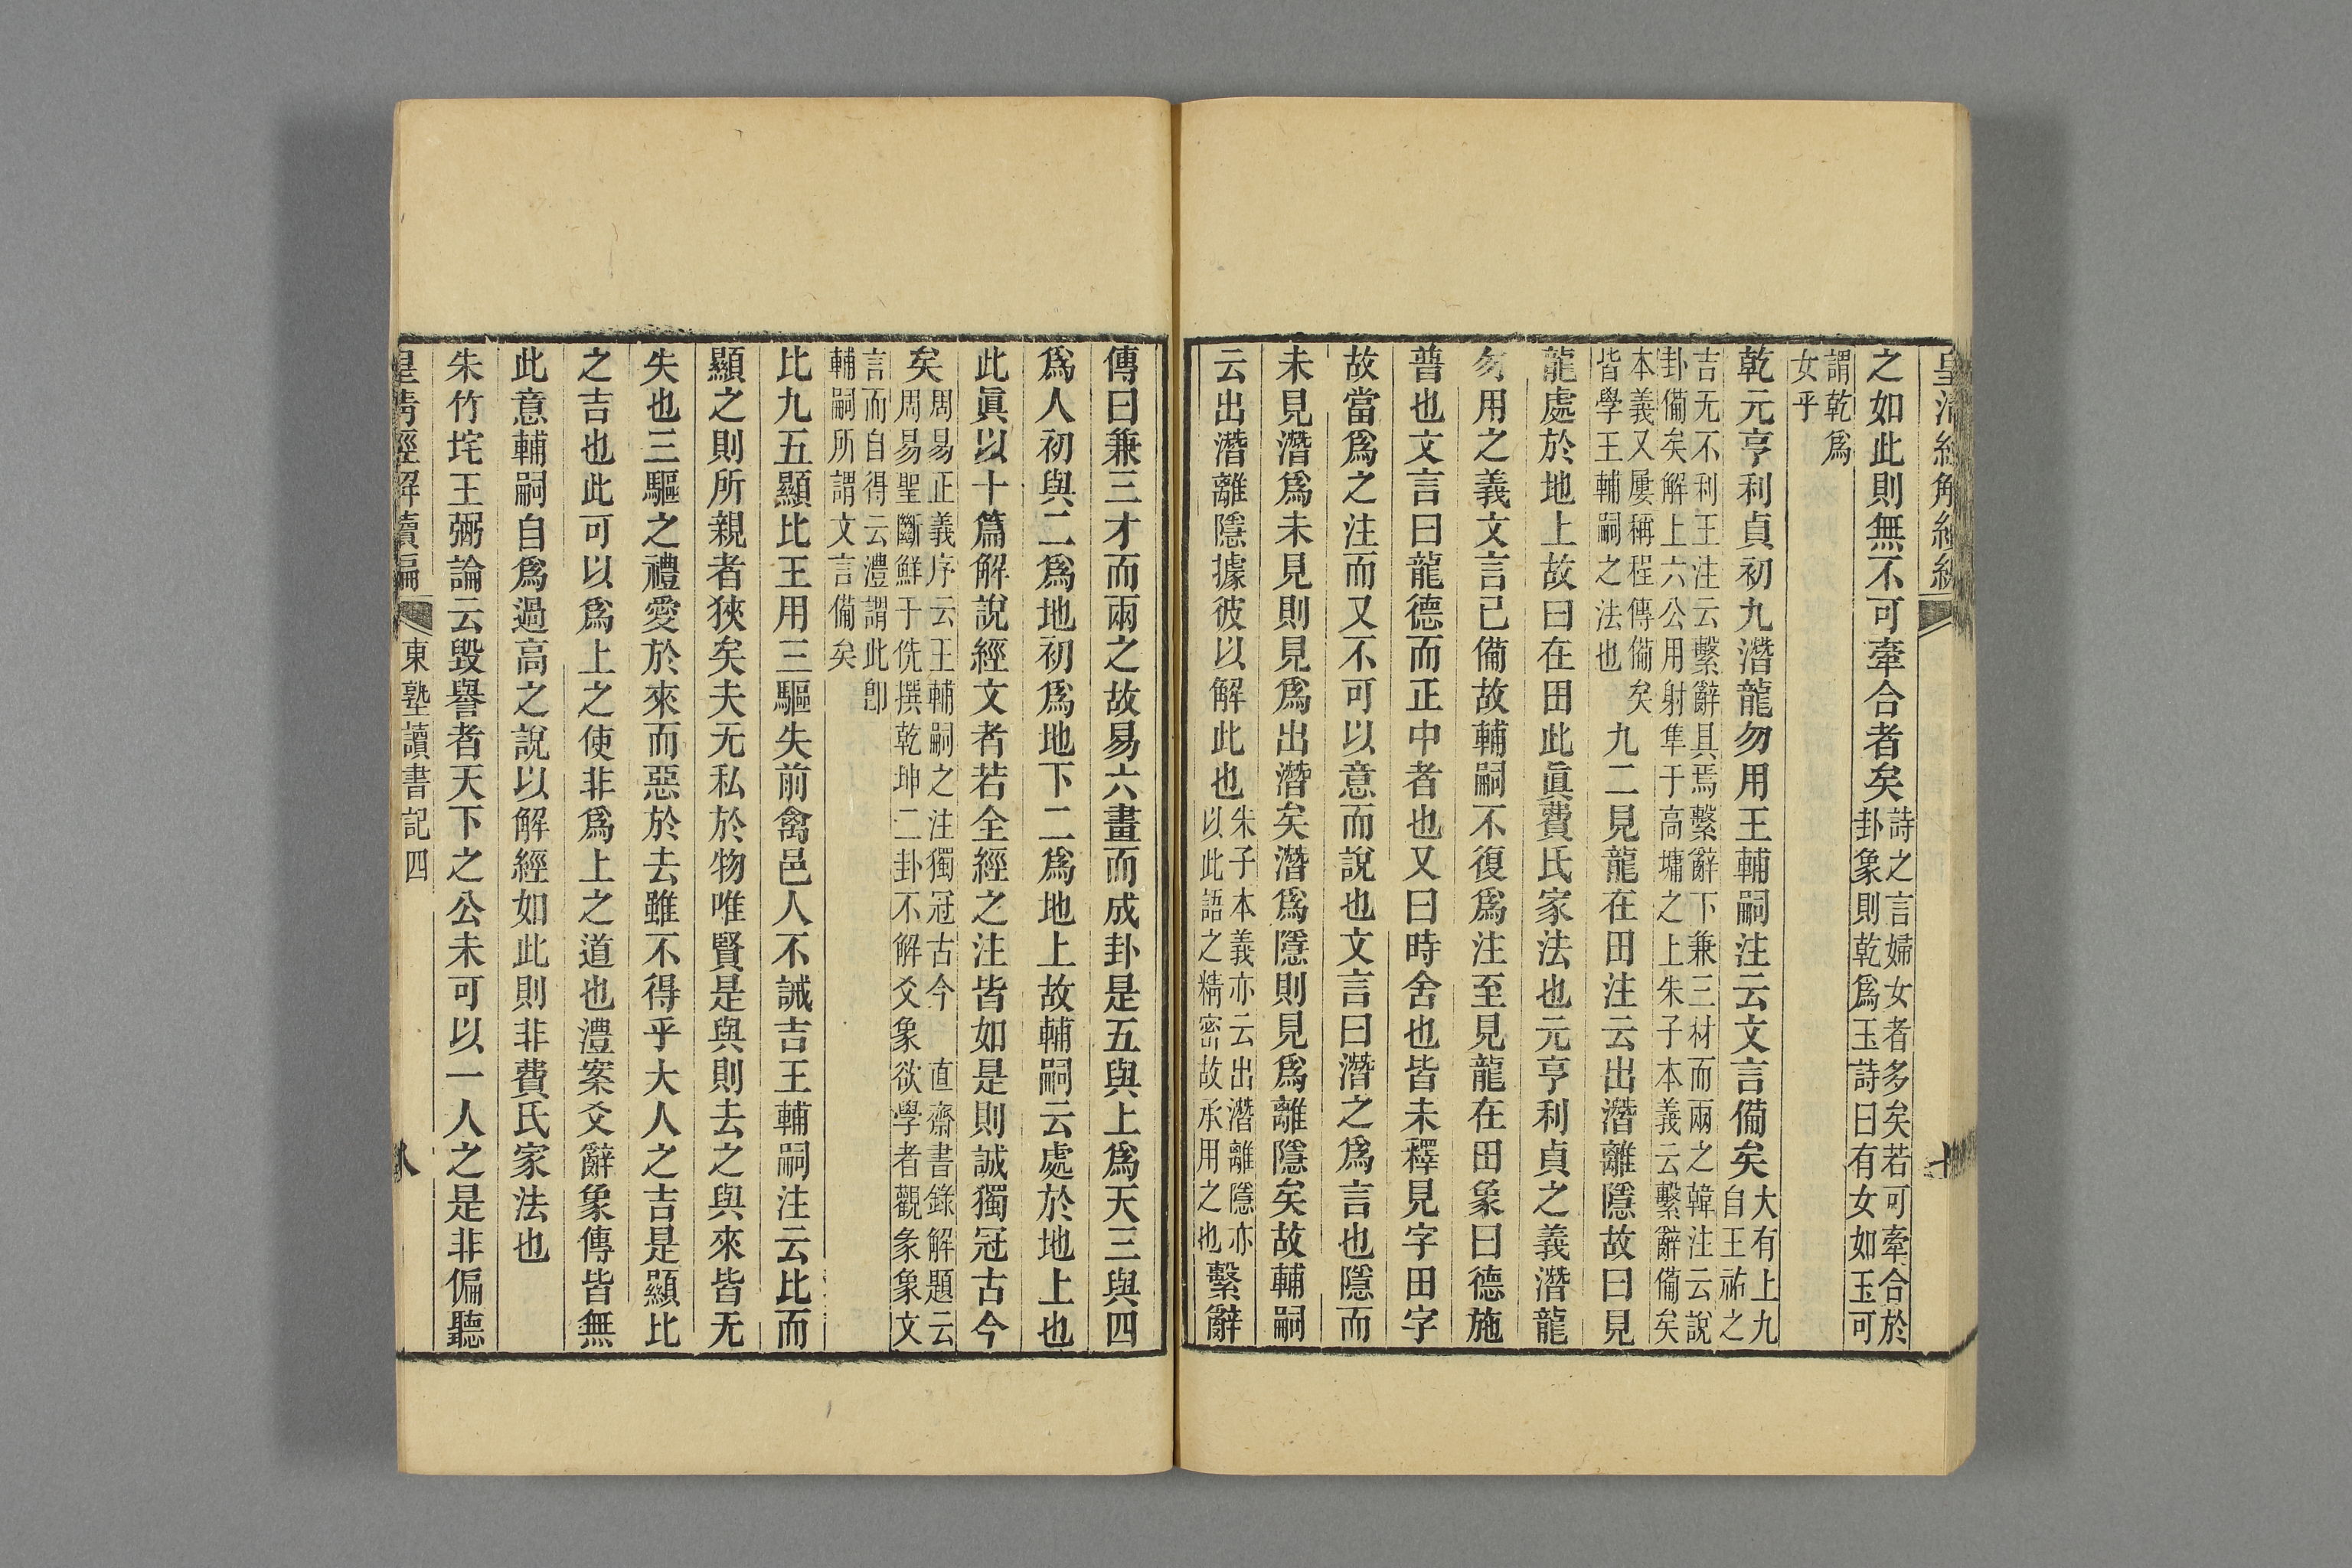 皇清經解續編
之如此則無不可牽合者矣詩之言婦女者多矣若可牽合於
卦象則乾爲玉詩曰有女如玉可
謂乾爲
女乎
乾元亨利貞初九潛龍勿用王輔嗣注云文言備矣大有上九
自王祐之
吉无不利王注云繫辭具焉繫辭下兼三材而兩之韓注云說
卦備矣解上六公用射隼于高墉之上朱子本義云繫辭備矣
本義又屢稱程傳備矣
皆學王輔嗣之法也
九二見龍在田注云出潛離隱故曰見
龍處於地上故曰在田此眞費氏家法也元亨利貞之義潛龍
勿用之義文言已備故輔嗣不復爲注至見龍在田象曰德施
普也文言曰龍德而正中者也又曰時舍也皆未釋見字田字
故當爲之注而又不可以意而說也文言曰潛之爲言也隱而
未見潛爲未見則見爲出潛矣潛爲隱則見爲離隱矣故輔嗣
云出潛離隱據彼以解此也朱子本義亦云出潛離隱亦
以此語之精密故承用之也
繫辭
傳曰兼三才而兩之故易六畫而成卦是五與上爲天三與四
爲人初與二爲地初爲地下二爲地上故輔嗣云處於地上也
此眞以十篇解說經文者若全經之注皆如是則誠獨冠古今
矣周易正義序云王輔嗣之注獨冠古今 直齋書錄解題云
周易聖斷鮮于侁撰乾坤二卦不解爻象欲學者觀彖象文
言而自得云澧謂此卽
輔嗣所謂文言備矣
比九五顯比王用三驅失前禽邑人不誡吉王輔嗣注云比而
顯之則所親者狹矣夫无私於物唯賢是與則去之與來皆无
失也三驅之禮愛於來而惡於去雖不得乎大人之吉是顯比
之吉也此可以爲上之使非爲上之道也澧案爻辭象傳皆無
此意輔嗣自爲過高之說以解經如此則非費氏家法也
朱竹垞王弼論云毀譽者天下之公未可以一人之是非偏聽
皇清經解續編 東塾讀書記四 八